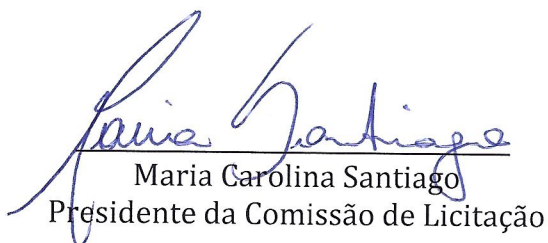 Maria Santiago
Maria Carolina Santiago
Presidente da Comissão de Licitação